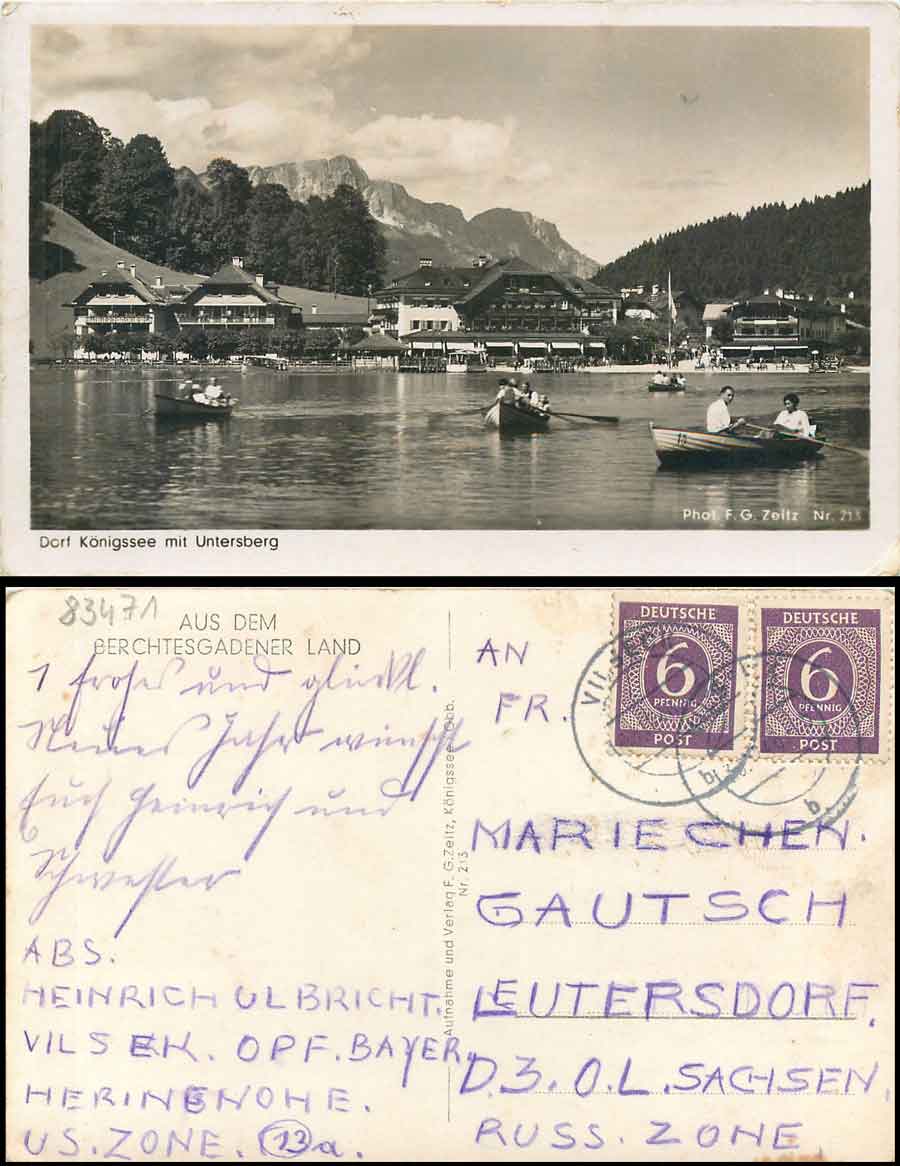 Phot. F. G. Zeitz Nr. 213
Dorf Königssee mit Untersberg
83471
AUS DEM
BERCHTESGADENER LAND
1 frohes und glückl.
Neues Jahr wünscht
Euch Heinrich und
Schwester
ABS.
HEINRICH ULBRICHT.
VILSEK. OPF. BAYER.
US. ZONE. 13a.
Aufnahme und Verlag F. G. Zeitz, Königssee, Obb.
Nr. 213
DEUTSCHE
6
PFENNIG
POST
DEUTSCHE
6
PFENNIG
POST
b
AN
FR.
MARIECHEN.
GAUTSCH
LEUTERSDORF.
D.3. O.L. SACHSEN.
RUSS. ZONE